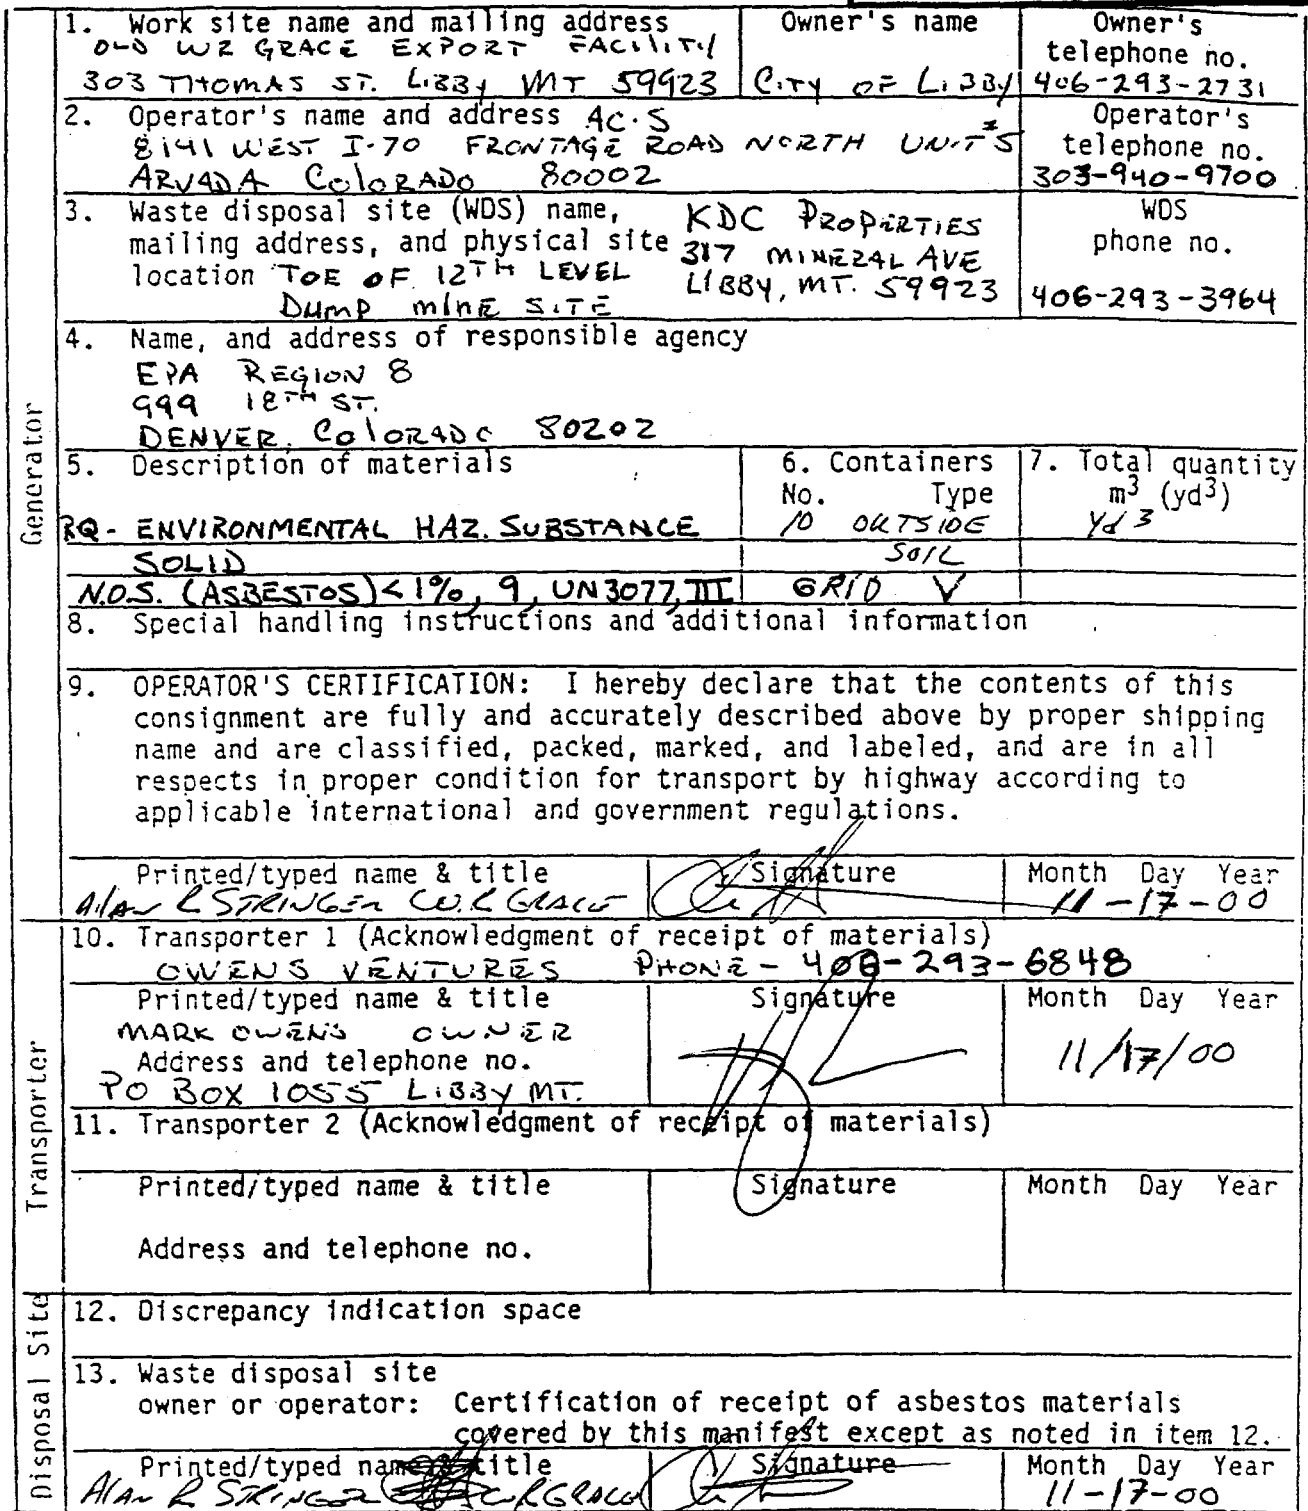 1. Work site name and mailing address
OLD WR GRACE EXPORT FACILITY
303 THOMAS ST. LIBBY MT 59923
Owner's name
CITY OF LIBBY
Owner's
telephone no.
406-293-2731
2. Operator's name and address AC·S
8141 WEST I-70 FRONTAGE ROAD NORTH UNIT #5
ARVADA COLORADO 80002
Operator's
telephone no.
303-940-9700
3. Waste disposal site (WDS) name,
mailing address, and physical site
location TOE OF 12TH LEVEL
DUMP MINE SITE
KDC PROPERTIES
317 MINERAL AVE
LIBBY, MT. 59923
WDS
phone no.
406-293-3964
Generator
4. Name, and address of responsible agency
EPA REGION 8
999 18TH ST.
DENVER, COLORADO 80202
5. Description of materials
RQ - ENVIRONMENTAL HAZ. SUBSTANCE
SOLID
N.O.S. (ASBESTOS) < 1%, 9, UN3077, III
6. Containers
No. Type
10 OUTSIDE
SOIL
GRID V
7. Total quantity
m3 (yd3)
Yd3
8. Special handling instructions and additional information
9. OPERATOR'S CERTIFICATION: I hereby declare that the contents of this
consignment are fully and accurately described above by proper shipping
name and are classified, packed, marked, and labeled, and are in all
respects in proper condition for transport by highway according to
applicable international and government regulations.
Printed/typed name & title
Alan R STRINGER W.R GRACE
Signature
Month Day Year
11-17-00
Transporter
10. Transporter 1 (Acknowledgment of receipt of materials)
OWENS VENTURES PHONE - 406-293-6848
Printed/typed name & title
MARK OWENS OWNER
Address and telephone no.
PO BOX 1055 LIBBY MT.
Signature
Month Day Year
11/17/00
11. Transporter 2 (Acknowledgment of receipt of materials)
Printed/typed name & title
Address and telephone no.
Signature
Month Day Year
Disposal Site
12. Discrepancy indication space
13. Waste disposal site
owner or operator: Certification of receipt of asbestos materials
covered by this manifest except as noted in item 12.
Printed/typed name & title
Alan R STRINGER W.R GRACE
Signature
Month Day Year
11-17-00